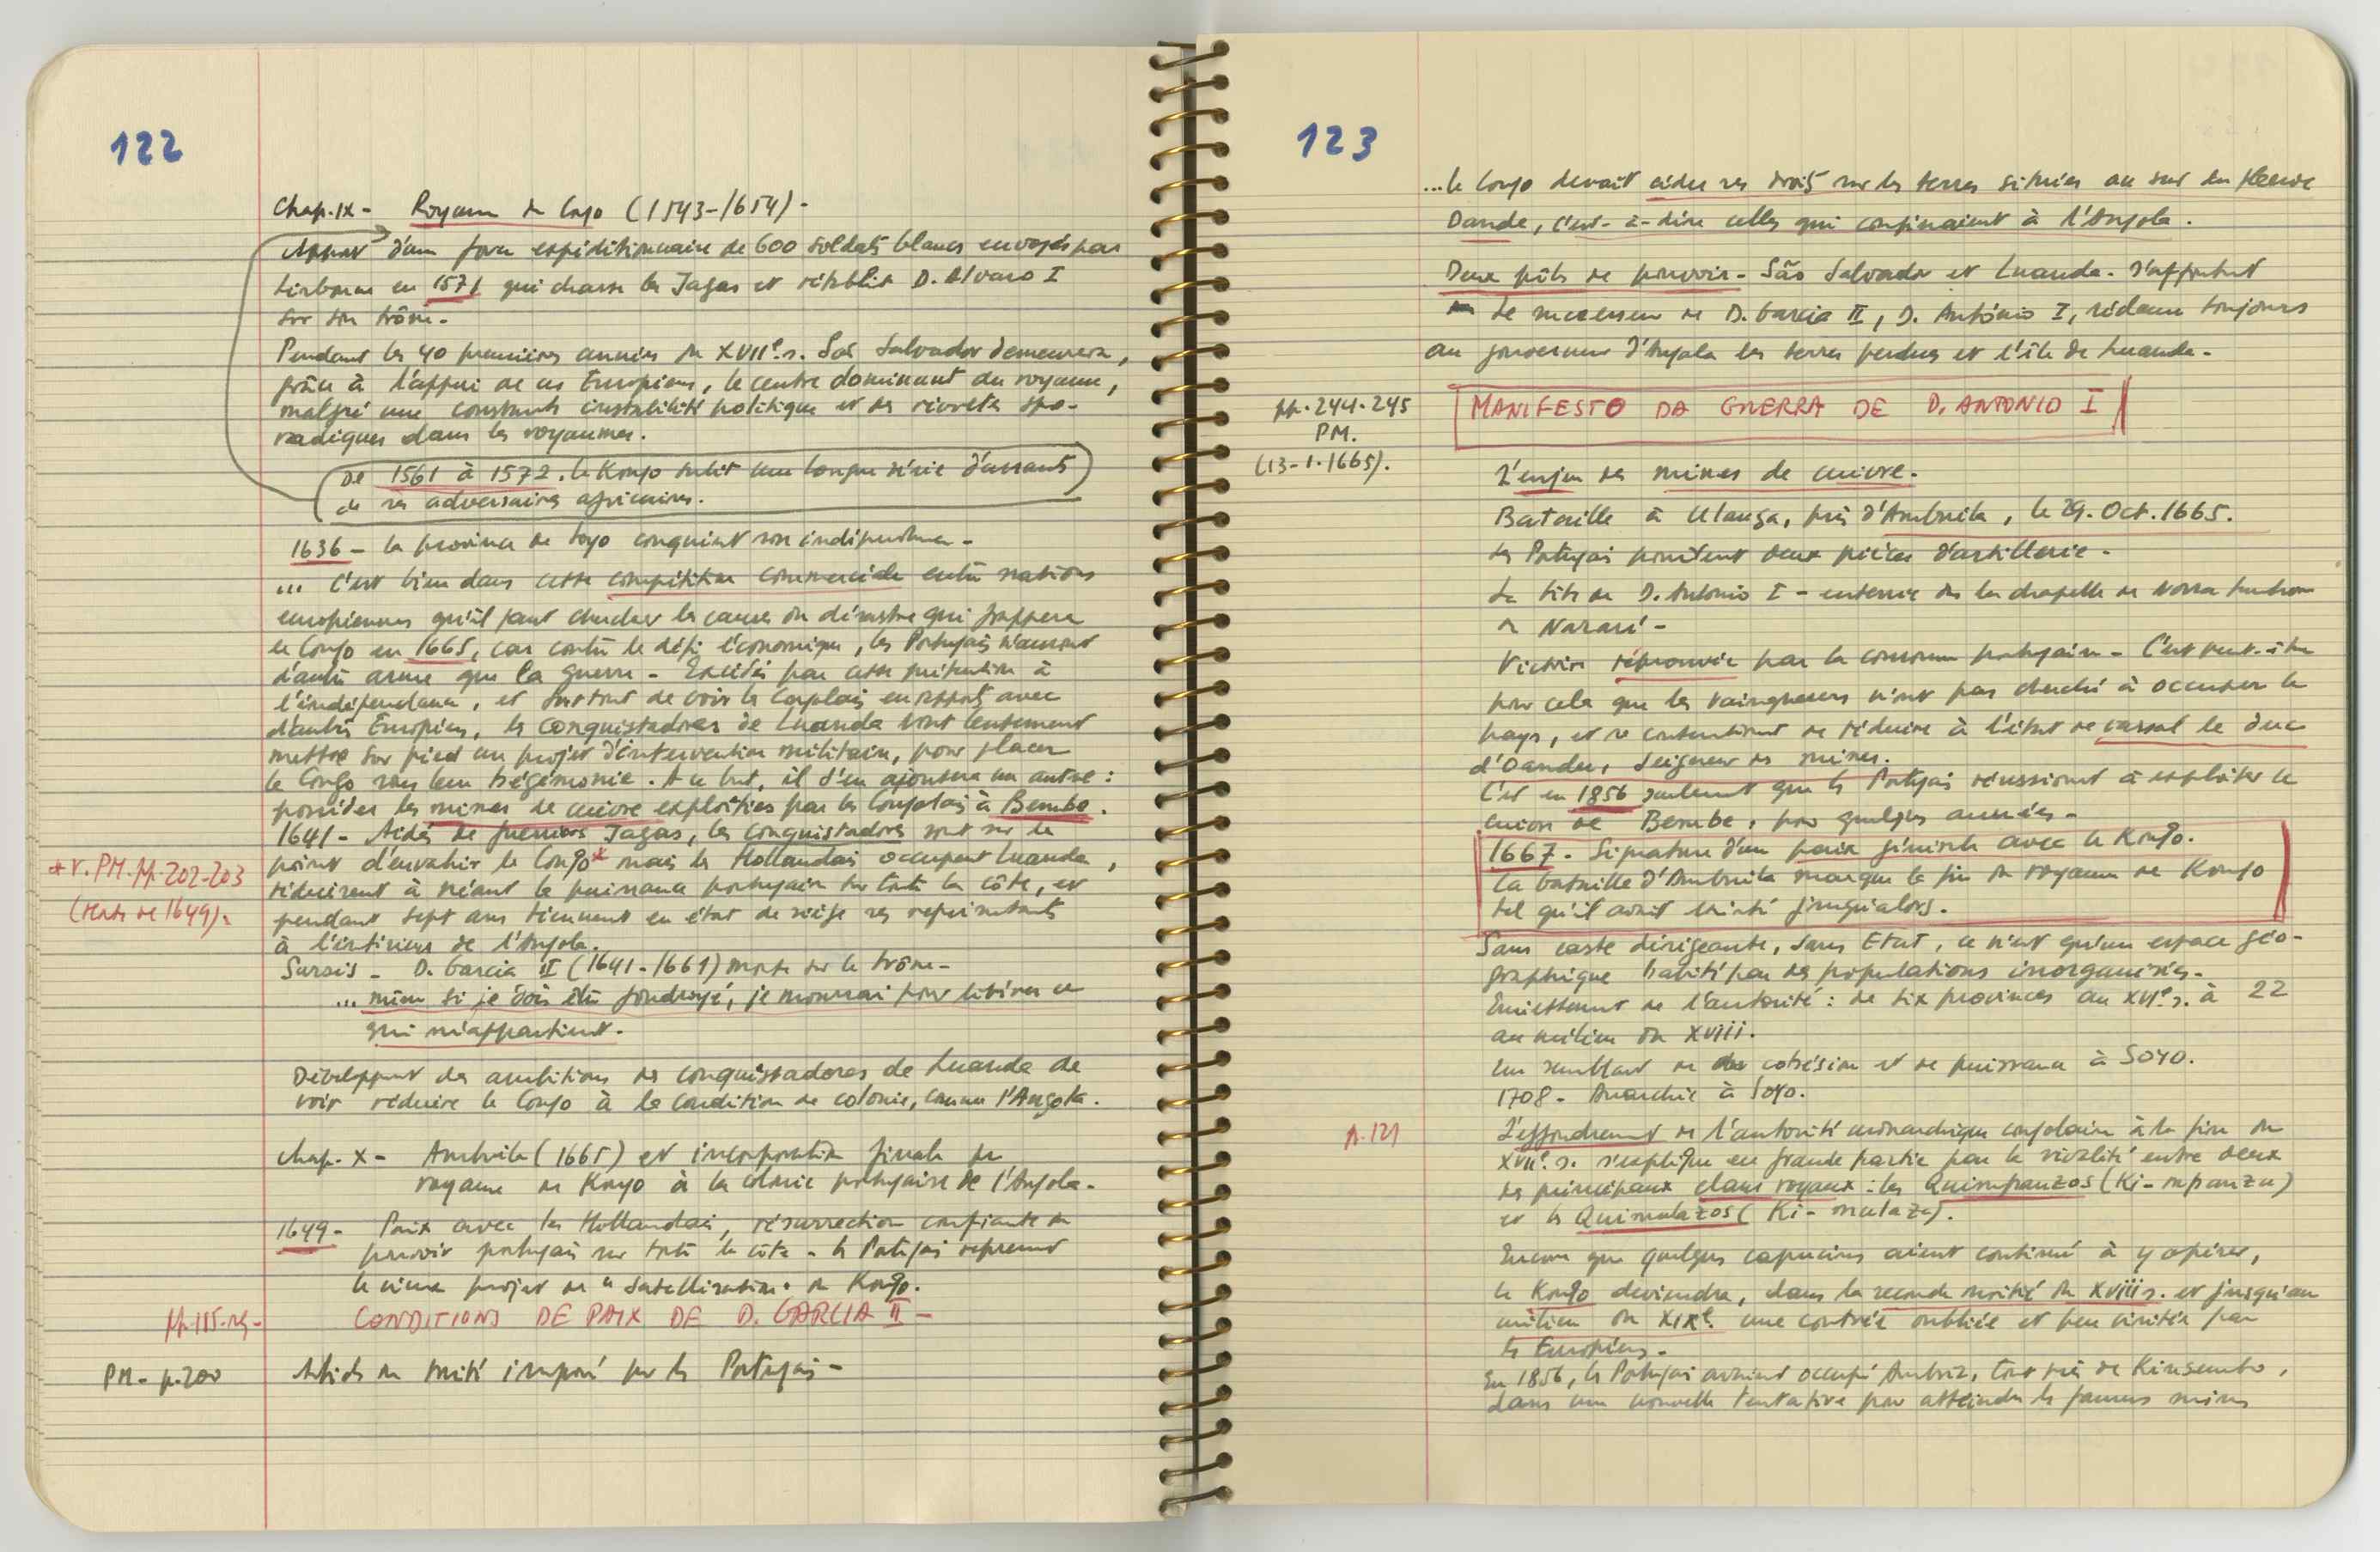 122
Chap. IX - Royaume du Congo (1543-1654) -
Apport d'une force expéditionnaire de 600 soldats blancs envoyés par
Lisbonne en 1571 qui chasse les Jagas et rétablit D. Alvaro I
sur son trône.
Pendant les 40 premières années du XVIIe. s. São Salvador demeurera,
grâce à l'appui de ces Européens, le centre dominant du royaume,
malgré une constante instabilité politique et des révoltes spo-
radiques dans les royaumes.
De 1561 à 1572, le Kongo subit une longue série d'assauts
de ses adversaires africains.
1636 - la province de Soyo conquiert son indépendance -
... c'est bien dans cette compétition commerciale entre nations
européennes qu'il faut chercher les causes du désastre qui frappera
le Congo en 1665, car contre le défi économique, les Portugais n'auront
d'autre arme que la guerre - Excités par cette prétention à
l'indépendance, et surtout de voir les Congolais en rapport avec
d'autres Européens, les conquistadores de Luanda vont lentement
mettre sur pied un projet d'intervention militaire, pour placer
le Congo sous leur hégémonie. A ce but, il s'en ajoutera un autre :
posséder les mines de cuivre exploitées par les Congolais à Bembe.
1641 - Aidés de guerriers Jagas, les conquistadores sont sur le
point d'envahir le Congo* mais les Hollandais occupent Luanda,
* v. PM. pp. 202-203
réduisent à néant la puissance portugaise sur toute la côte, et
(texte de 1649).
pendant sept ans tiennent en état de siège ses représentants
à l'intérieur de l'Angola.
Sursis - D. Garcia II (1641-1661) monte sur le trône -
... même si je dois être foudroyé, je mourrai pour libérer ce
qui m'appartient.
Développent des ambitions des conquistadores de Luanda de
voir réduire le Congo à la condition de colonie, comme l'Angola.
Chap. X - Ambuila (1665) et incorporation finale du
royaume de Kongo à la colonie portugaise de l'Angola -
1649 - Paix avec les Hollandais, résurrection confiante du
pouvoir portugais sur toute la côte - les Portugais reprennent
le vieux projet de "satellisation" du Kongo.
pp. 115. sq - CONDITIONS DE PAIX DE D. GARCIA II -
PM - p. 200 Articles du traité imposé par les Portugais -
123
... le Congo devait céder ses droits sur les terres situées au sud du fleuve
Dande, c'est-à-dire celles qui confinaient à l'Angola.
Deux pôles de pouvoir - São Salvador et Luanda - s'affrontent
Le successeur de D. Garcia II, D. António I, réclame toujours
au gouverneur d'Angola les terres perdues et l'île de Luanda -
pp. 244-245
PM.
(13-1-1665).
MANIFESTO DA GUERRA DE D. ANTONIO I
L'enjeu des mines de cuivre.
Bataille à Ulanga, près d'Ambuila, le 29. Oct. 1665.
Les Portugais pointent deux pièces d'artillerie -
La tête de D. Antonio I - enterrée ds la chapelle de Nossa Senhora
de Nazaré -
Victoire réprouvée par la couronne portugaise - C'est peut-être
pour cela que les vainqueurs n'ont pas cherché à occuper le
pays, et se contentèrent de réduire à l'état de vassal le duc
d'Oandu, seigneur des mines.
C'est en 1856 seulement que les Portugais réussiront à exploiter le
cuivre de Bembe, pour quelques années -
1667 - Signature d'une paix générale avec le Kongo.
La bataille d'Ambuila marque la fin du royaume de Kongo
tel qu'il avait existé jusqu'alors.
Sans caste dirigeante, sans Etat, ce n'est qu'un espace géo-
graphique habité par des populations inorganisées -
Emiettement de l'autorité : de six provinces au XVIe. s. à 22
au milieu du XVIII.
Un semblant de cohésion et de puissance à SOYO.
1708 - Anarchie à Soyo.
p. 121
L'effondrement de l'autorité monarchique congolaise à la fin du
XVIIe. s. s'explique en grande partie par la rivalité entre deux
des principaux clans royaux : les Quimpanzos (Ki-mpanzu)
et les Quimulazos (Ki-mulaza).
Encore que quelques capucins aient continué à y opérer,
le Kongo deviendra, dans la seconde moitié du XVIII s. et jusqu'au
milieu du XIXe. une contrée oubliée et peu visitée par
les Européens.
En 1856, les Portugais avaient occupé Ambriz, tout près de Kinsembo,
dans une nouvelle tentative pour atteindre les fameuses mines